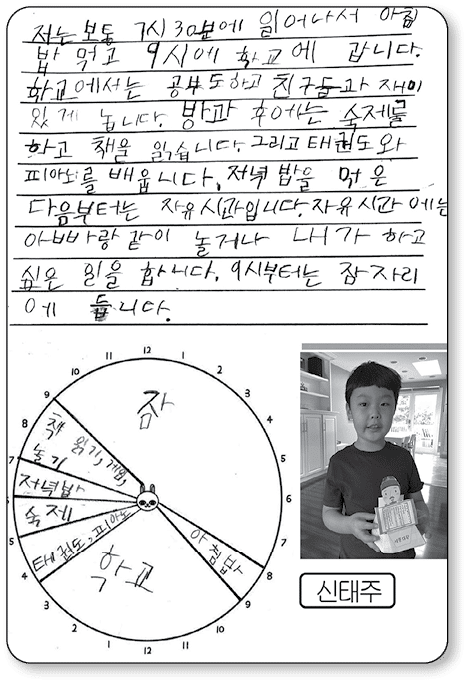 저는 보통 7시 30분에 일어나서 아침
밥 먹고 9시에 학교에 갑니다.
학교에서는 공부도하고 친구들과 재미
있게 놉니다. 방과 후에는 숙제를
하고 책을 읽습니다. 그리고 태권도와
피아노를 배웁니다. 저녁 밥을 먹은
다음부터는 자유시간입니다. 자유시간에는
아빠랑 같이 놀거나 내가 하고
싶은 일을 합니다. 9시부터는 잠자리
에 듭니다.
12
11 1
10 2
9 3
8 4
7 5
6 6
5 7
4 8
3 9
2 10
1 11
12
잠
책 읽기, 게임,
놀기
저녁밥
숙제
태권도, 피아노
학교
아침밥
신태주